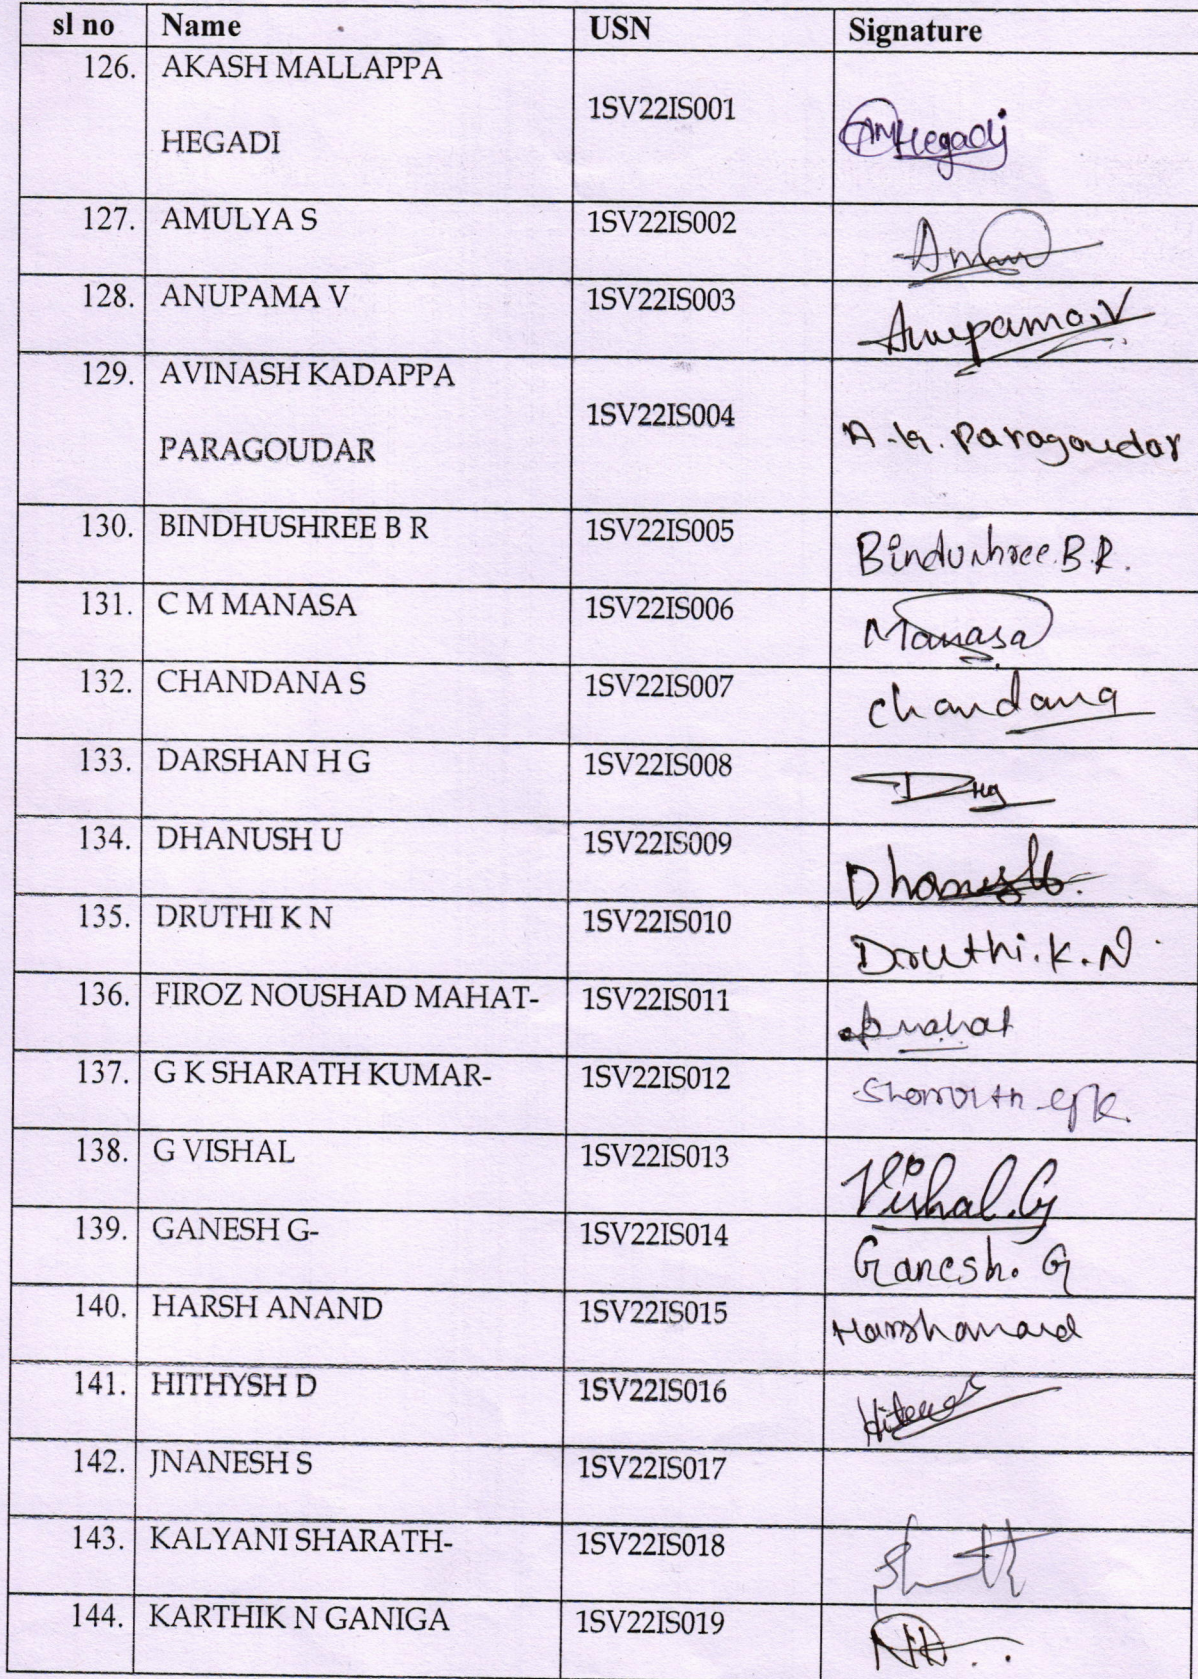 sl no Name USN Signature
126. AKASH MALLAPPA
HEGADI 1SV22IS001 AMHegadi
127. AMULYA S 1SV22IS002
128. ANUPAMA V 1SV22IS003 Anupama.V
129. AVINASH KADAPPA
PARAGOUDAR 1SV22IS004 A.K. Paragoudar
130. BINDHUSHREE B R 1SV22IS005 Bindushree.B.R.
131. C M MANASA 1SV22IS006 Manasa
132. CHANDANA S 1SV22IS007 Chandana
133. DARSHAN H G 1SV22IS008 DHg
134. DHANUSH U 1SV22IS009
135. DRUTHI K N 1SV22IS010 Druthi.K.N
136. FIROZ NOUSHAD MAHAT- 1SV22IS011
137. G K SHARATH KUMAR- 1SV22IS012
138. G VISHAL 1SV22IS013 Vishal.G
139. GANESH G- 1SV22IS014 Ganesh. G
140. HARSH ANAND 1SV22IS015 Harshanand
141. HITHYSH D 1SV22IS016
142. JNANESH S 1SV22IS017
143. KALYANI SHARATH- 1SV22IS018
144. KARTHIK N GANIGA 1SV22IS019